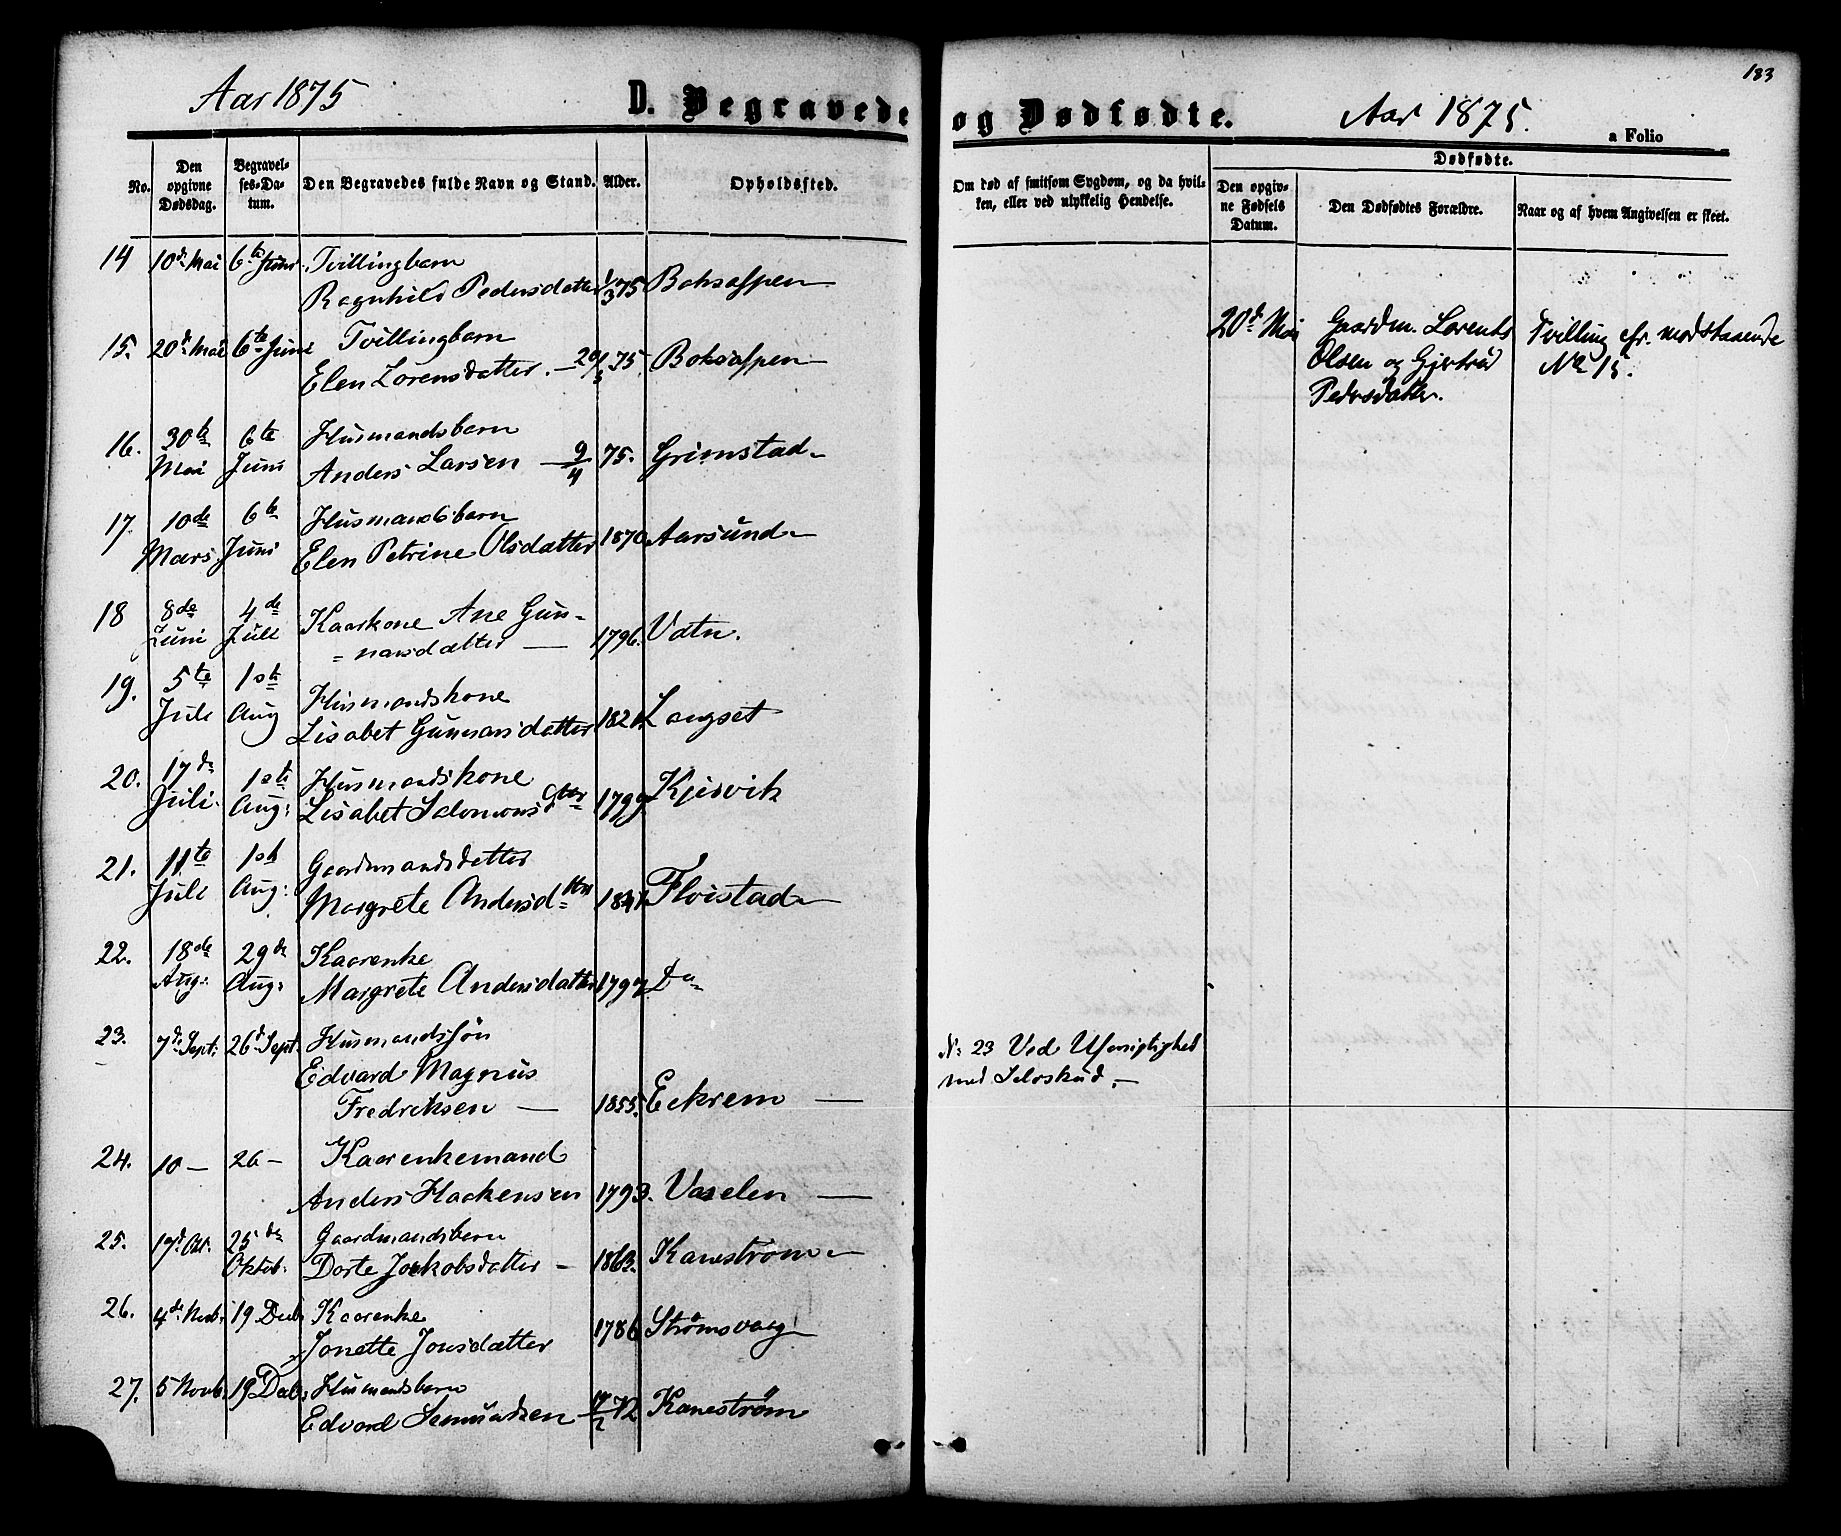 183
Aar 1875 D. Begravede og Dødfødte. Aar 1875. a Folio
No.
Den opgivne Dødsdag.
Begravelses-Datum.
Den Begravedes fulde Navn og Stand.
Alder.
Opholdssted.
Om død af smitsom Sygdom, og da hvilken, eller ved ulykkelig Hendelse.
Dødfødte.
Den opgivne Fødsels Datum.
Den Dødfødtes Forældre.
Naar og af hvem Angivelsen er skeet.
14 10de Mai 6te Juni Tvillingbarn
Ragnhild Pedersdatter 1/3 75 Boksaspen
15. 20de Mai 6te Juni Tvillingbarn
Elen Lorensdatter. — 20/5 75. Boksaspen
20d Mai Gaardm. Lorents
Olsen og Gjertrud
Pedersdatter.
Tvilling cfr. modstaaende
No 15.
16. 30te Mai 6te Juni Husmandsbarn
Anders Larsen — 9/4 75. Grimstad
17. 10de Mars 6te Juni Husmandsbarn
Elen Petrine Olsdatter 1870 Aarsund
18 8de Juni 4de Juli Kaarkone Ane Gun-
narsdatter — 1796. Vatn.
19. 5te Juli 1ste Aug Husmandskone
Lisabet Gunnarsdatter 1821 Langset
20. 17de Juli. 1ste Aug: Husmandskone
Lisabet Salomonsdtter 1799 Kjervik
21. 11te Juli 1ste Aug: Gaardmandsdatter
Margrete Andersdtter 1841 Floistad
22. 18de Aug: 29de Aug: Kaarenke
Margrete Andersdatter 1797 Do
23. 7de Sept: 26d Sept. Husmandssøn
Edvard Magnus
Fredriksen — 1855. Eckrem —
No 23 Ved Uforsigtighed
med Selvskud. —
24. 10 — 26 — Kaarenkemand
Anders Hackensen 1793. Vaselen —
25. 17d Okt. 25de Oktob. Gaardmandsbarn
Dorte Jackobsdatter — 1863. Kanestrøm
26. 4de Novb. 19 Decb. Kaarenke
Jonette Jonsdatter 1786 Strømsvaag
27. 5 Novb. 19 Decb. Husmandsbarn
Edvard Semundsen — 72 Kanestrøm